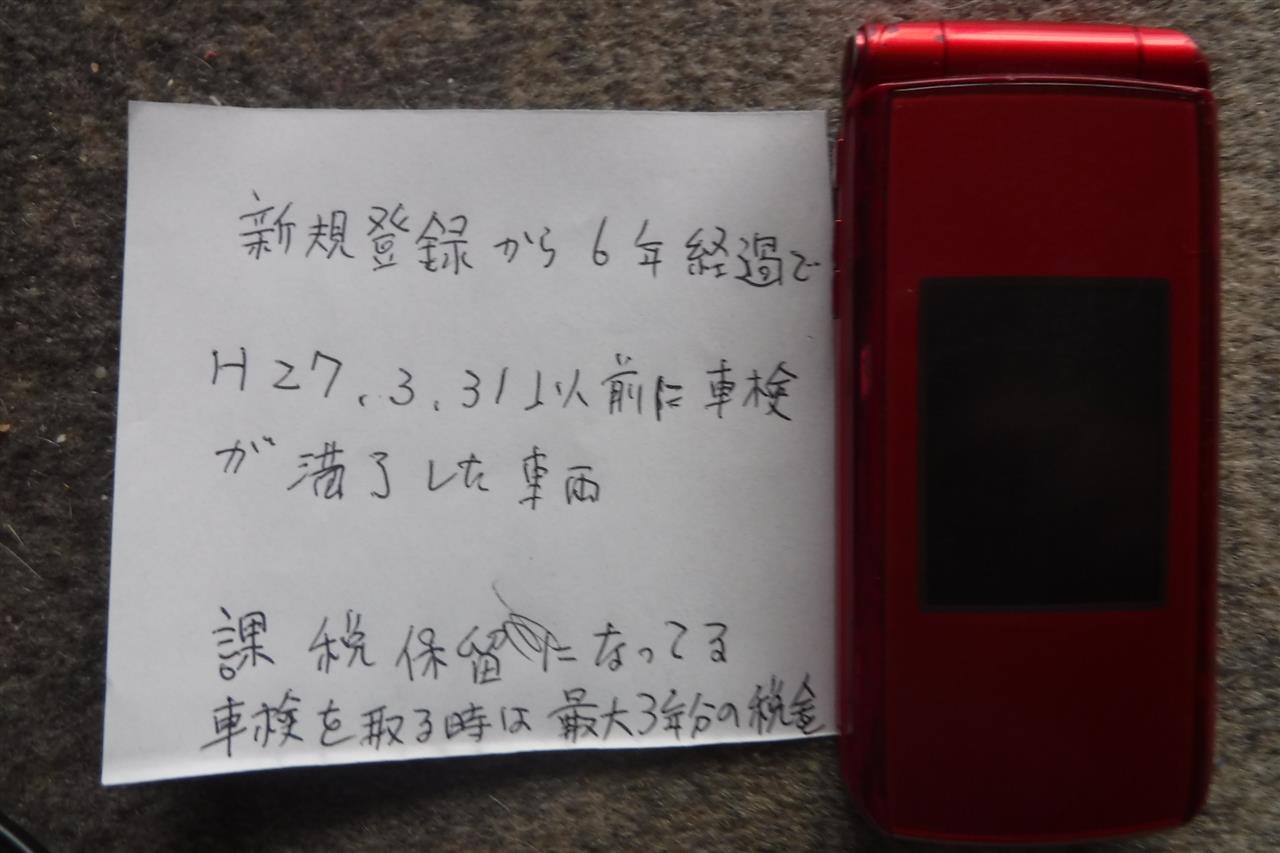 新規登録から6年経過で
H27.3.31以前に車検
が満了した車両
課税保留になってる
車検を取る時は最大3年分の税金